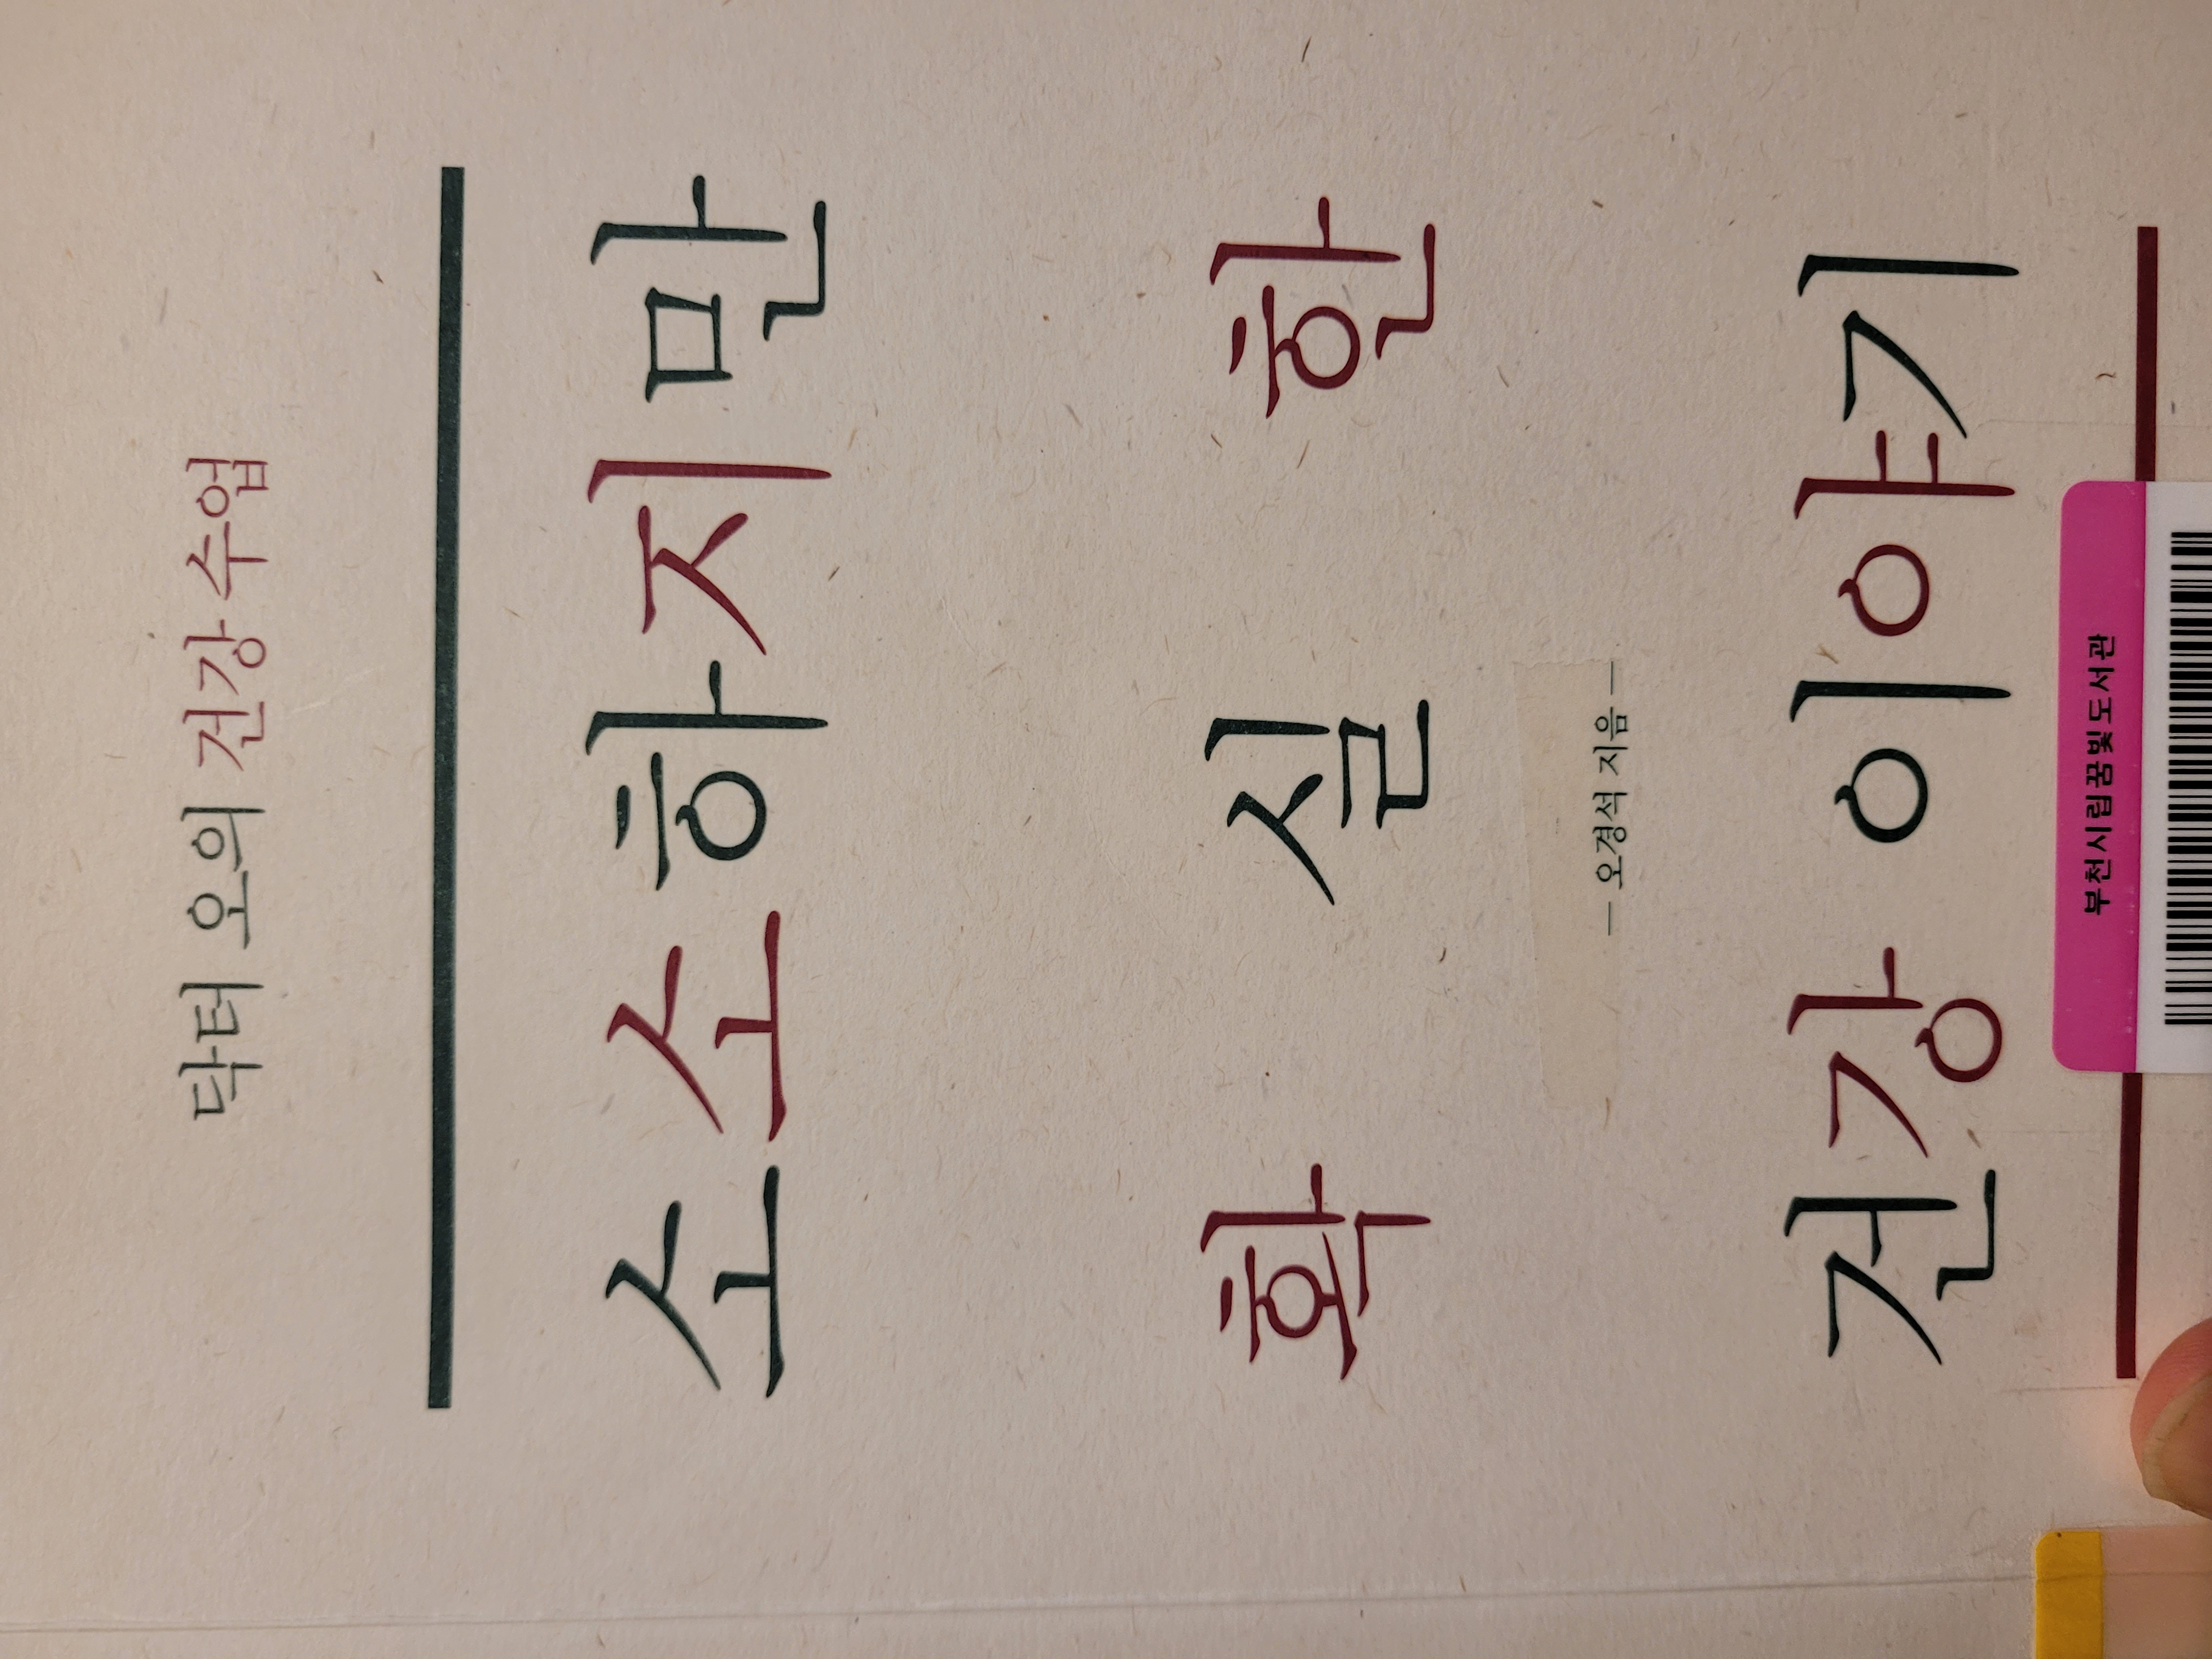 닥터 오의 건강 수업
소소하지만
확실한
— 오경석 지음 —
건강 이야기
부천시립꿈빛도서관